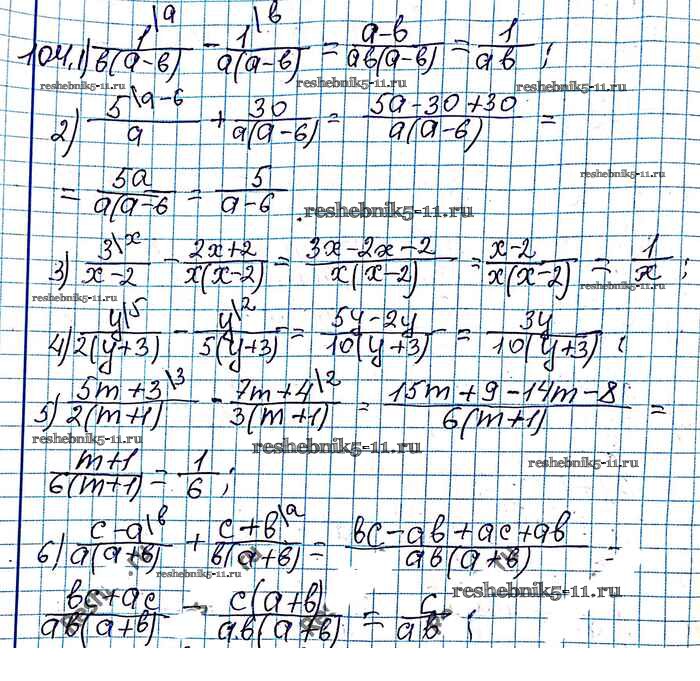 104.1) 1\a / b(a-b) - 1\b / a(a-b) = a-b / ab(a-b) = 1 / ab ;
reshebnik5-11.ru reshebnik5-11.ru
2) 5\a-6 / a + 30 / a(a-6) = 5a-30+30 / a(a-6) =
reshebnik5-11.ru
= 5a / a(a-6 = 5 / a-6
.reshebnik5-11.ru
3) 3\x / x-2 - 2x+2 / x(x-2) = 3x-2x-2 / x(x-2) = x-2 / x(x-2) = 1 / x ;
reshebnik5-11.ru reshebnik5-11.ru
4) y\5 / 2(y+3) - y\2 / 5(y+3) = 5y-2y / 10(y+3) = 3y / 10(y+3) ;
5) 5m+3\3 / 2(m+1) - 7m+4\2 / 3(m+1) = 15m+9-14m-8 / 6(m+1) =
reshebnik5-11.ru reshebnik5-11.ru
m+1 / 6(m+1) = 1 / 6 ;
reshebnik5-11.ru
6) c-a\b / a(a+b) + c+b\a / b(a+b) = bc-ab+ac+ab / ab(a+b) =
reshebnik5-11.ru
bc+ac / ab(a+b) = c(a+b) / ab(a+b) = c / ab ;
reshebnik5-11.ru